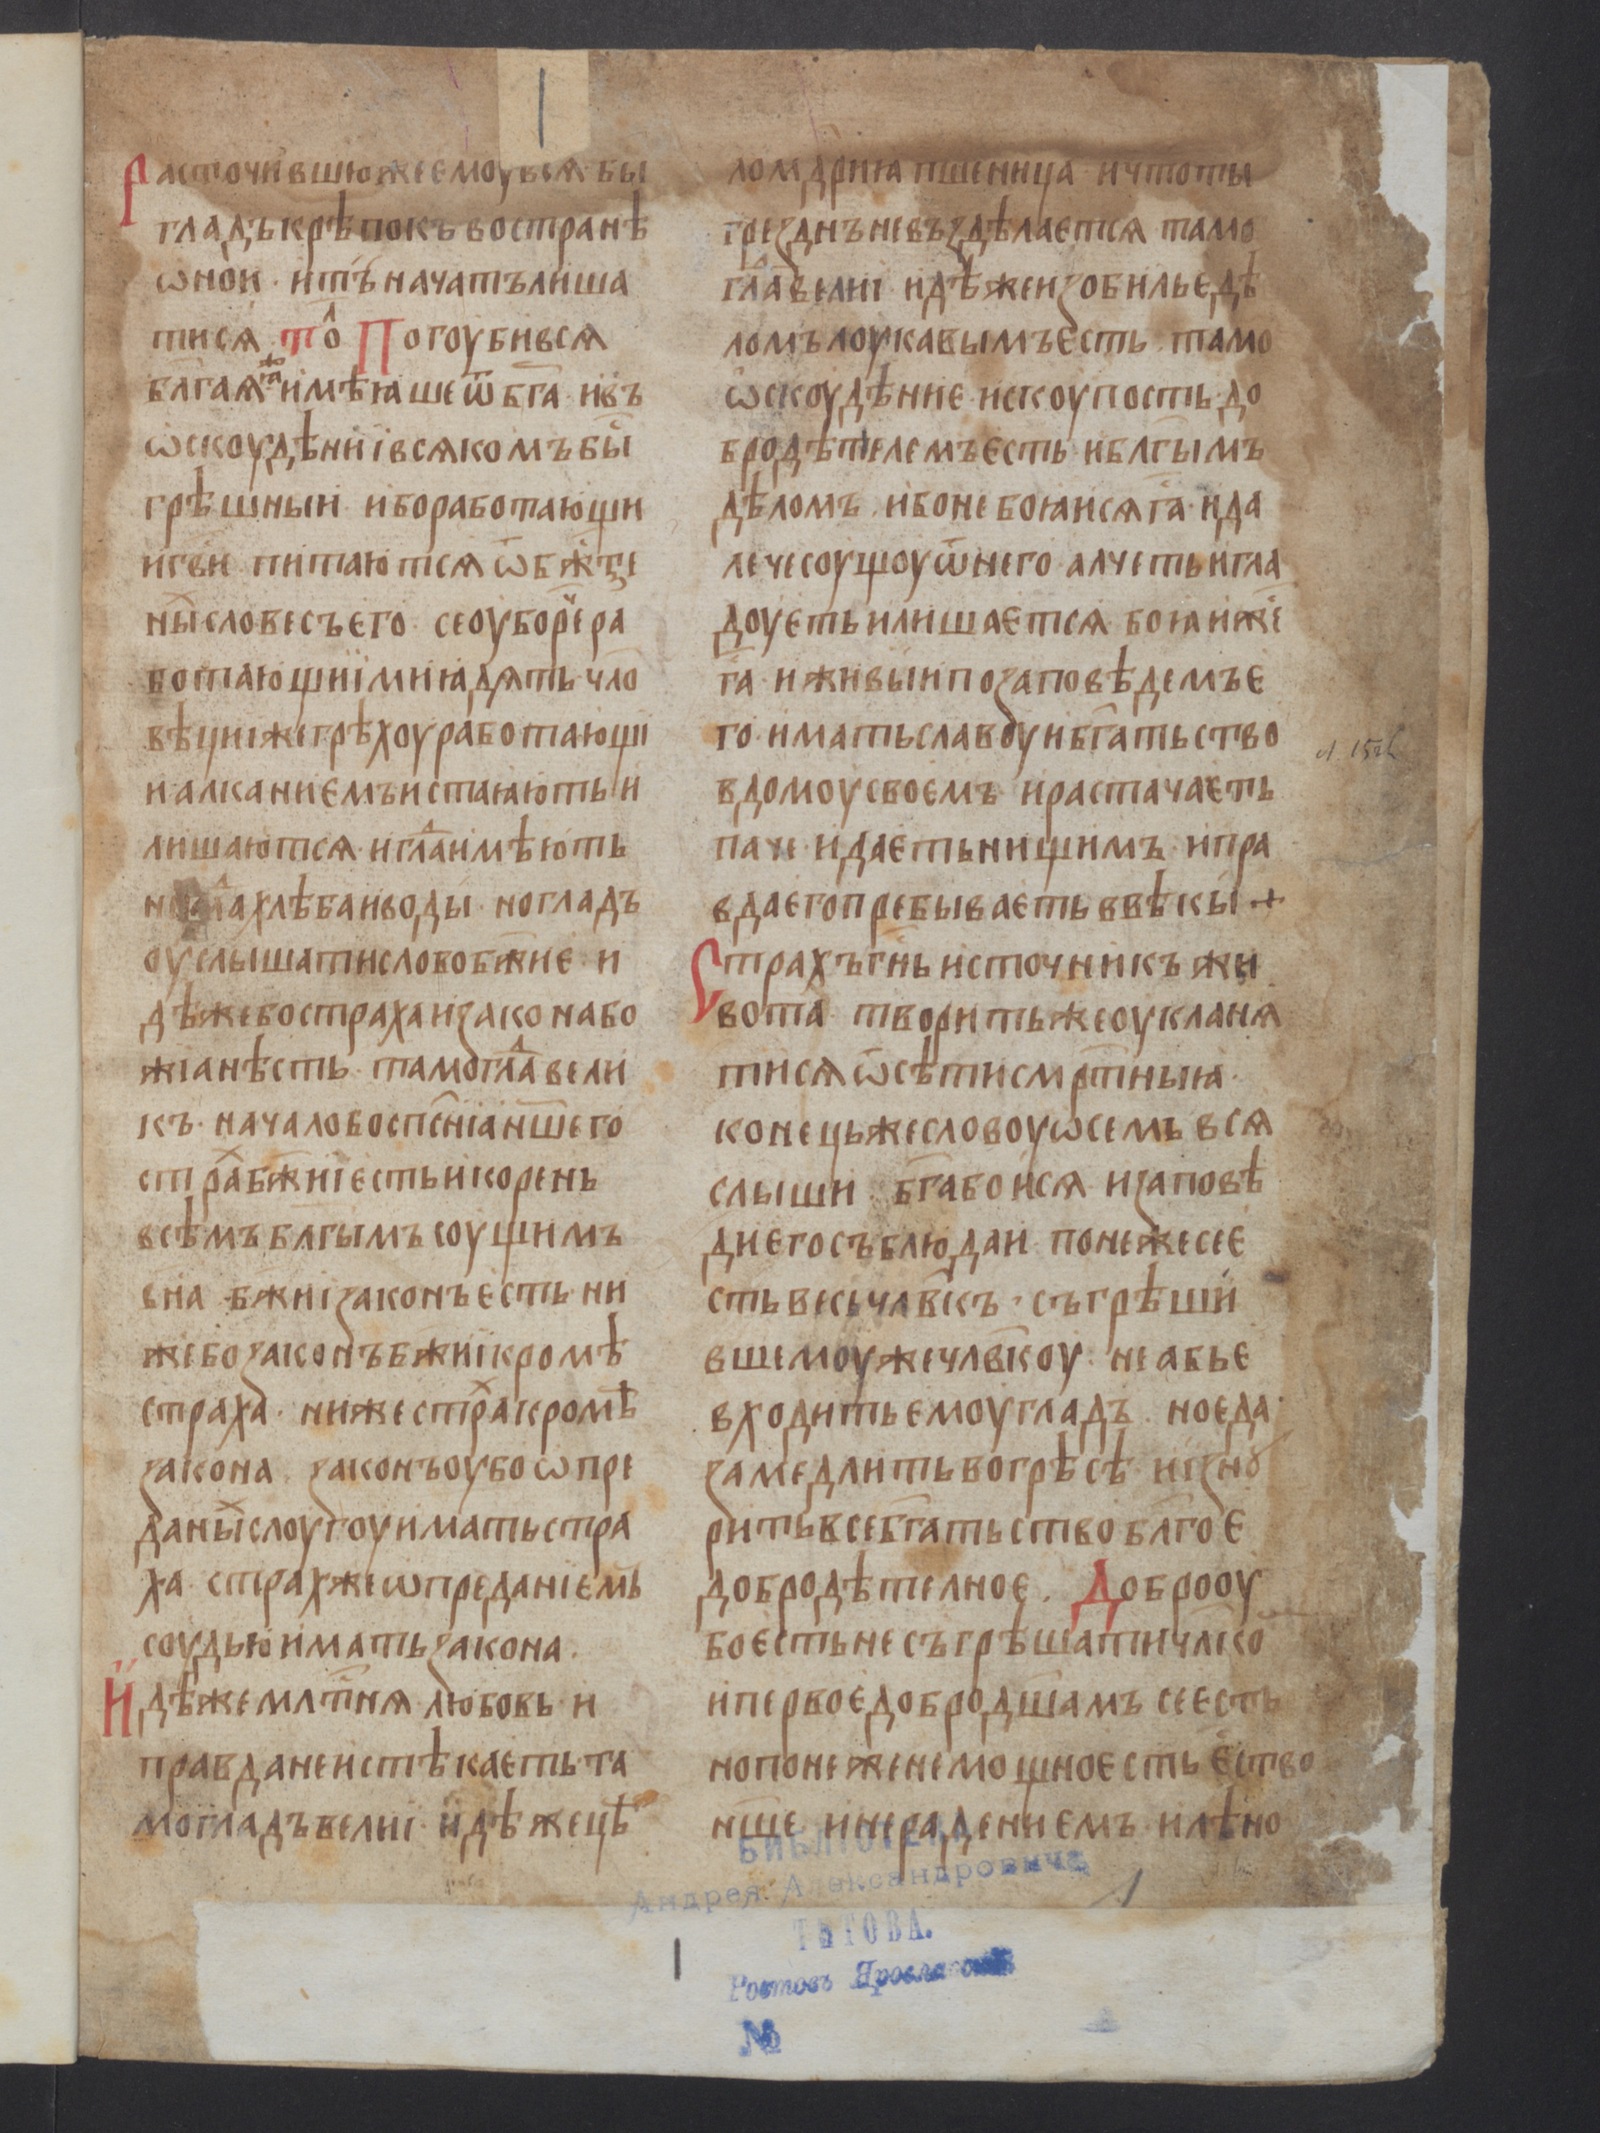 Расточившю же емоу вся· бы
гладъ крѣпокъ во странѣ
ѡнои· и тъ начатъ лиша
тися. то̑л Погоубивъ вся
бл҃гая яже имѣяше ѿ б҃га· и въ
ѡскоудѣнїи всякомъ бы̑
грѣшныи· ибо работающи
и г҃ви питаются ѿ бж҃тве
ны̑ словесъ его· се оубо рече ра
ботающиї ми ядять чло
вѣци же грѣхоу работающї
и алканиемъ истаяють и
лишаются· и гла̑д имѣють
не гла̑д хлѣба и воды· но гладъ
оуслышати слово бж҃ие· и
дѣже бо страха и закона бо
жїа нѣсть· тамо гла̑д вели
къ· начало бо сп҃сенїа н҃шего
стра̑х бж҃иї есть и корень
всѣмъ бл҃гымъ соущимъ
в на̑ бж҃иї законъ есть· ни
же бо законъ бж҃иї кромѣ
страха· ниже стра̑х кромѣ
закона· законъ оубо ѡ пре
даны̑х слоугоу имать стра
ха· страх же ѡ преданїемь
соудью имать закона·
Идѣже мл҃тня любовь· и
правда не истѣкаеть та
мо гладъ велиї· идѣже цѣ
ломдрия пшеница и что ты
грезднъ не въздѣлается тамо
гла̑д велиї· идѣже изобилье дѣ
ломъ лоукавымъ есть тамо
ѡскоудѣние и скоупость до
бродѣтелемъ есть и бл҃гымъ
дѣломъ· ибо не бояися г҃а· и да
лече соущоу ѿ него алчеть и гла
доуеть и лишается· бояи же
г҃а· и живыи по заповѣдемъ е
го· имать славоу и б҃гатьство
в домоу своемъ· и растачаеть
паче и даеть нищимъ· и пра
вда его пребываеть в вѣкы +
Страхъ г҃нь источникъ жи
вота· творить же оукланя
тися ѿ сѣти см҃ртныя·
конець же словоу ѡсемъ вся
слыши· б҃га боися и заповѣ
ди его съблюдаи· понеже се е
сть весь чл҃вкъ· съгрѣши
вшемоу же чл҃вкоу· не абье
входить емоу гладъ· но еда
замедлить во грѣсѣ и изну
рить все б҃гатьство бл҃гое
добродѣтелное. Добро оу
бо есть не съгрѣшати чл҃ко
и первое добро д҃шамъ се есть
но понеже немощно есть ество
н҃ше· и нерадениемъ и лѣно
л 152
БИБЛІОТЕКА
Андрея Александровича
ТИТОВА.
Ростовъ Ярославскій
№
1